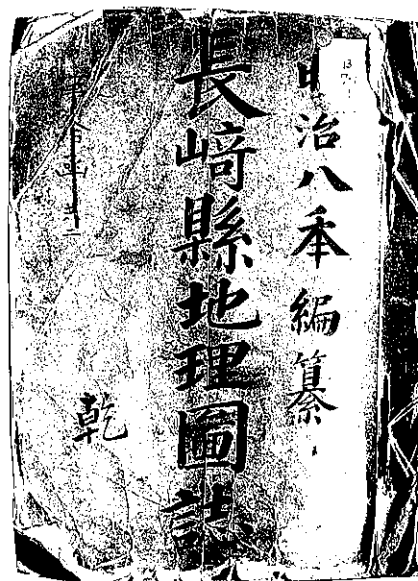 明治八年編纂
長﨑縣地理圖誌
乾